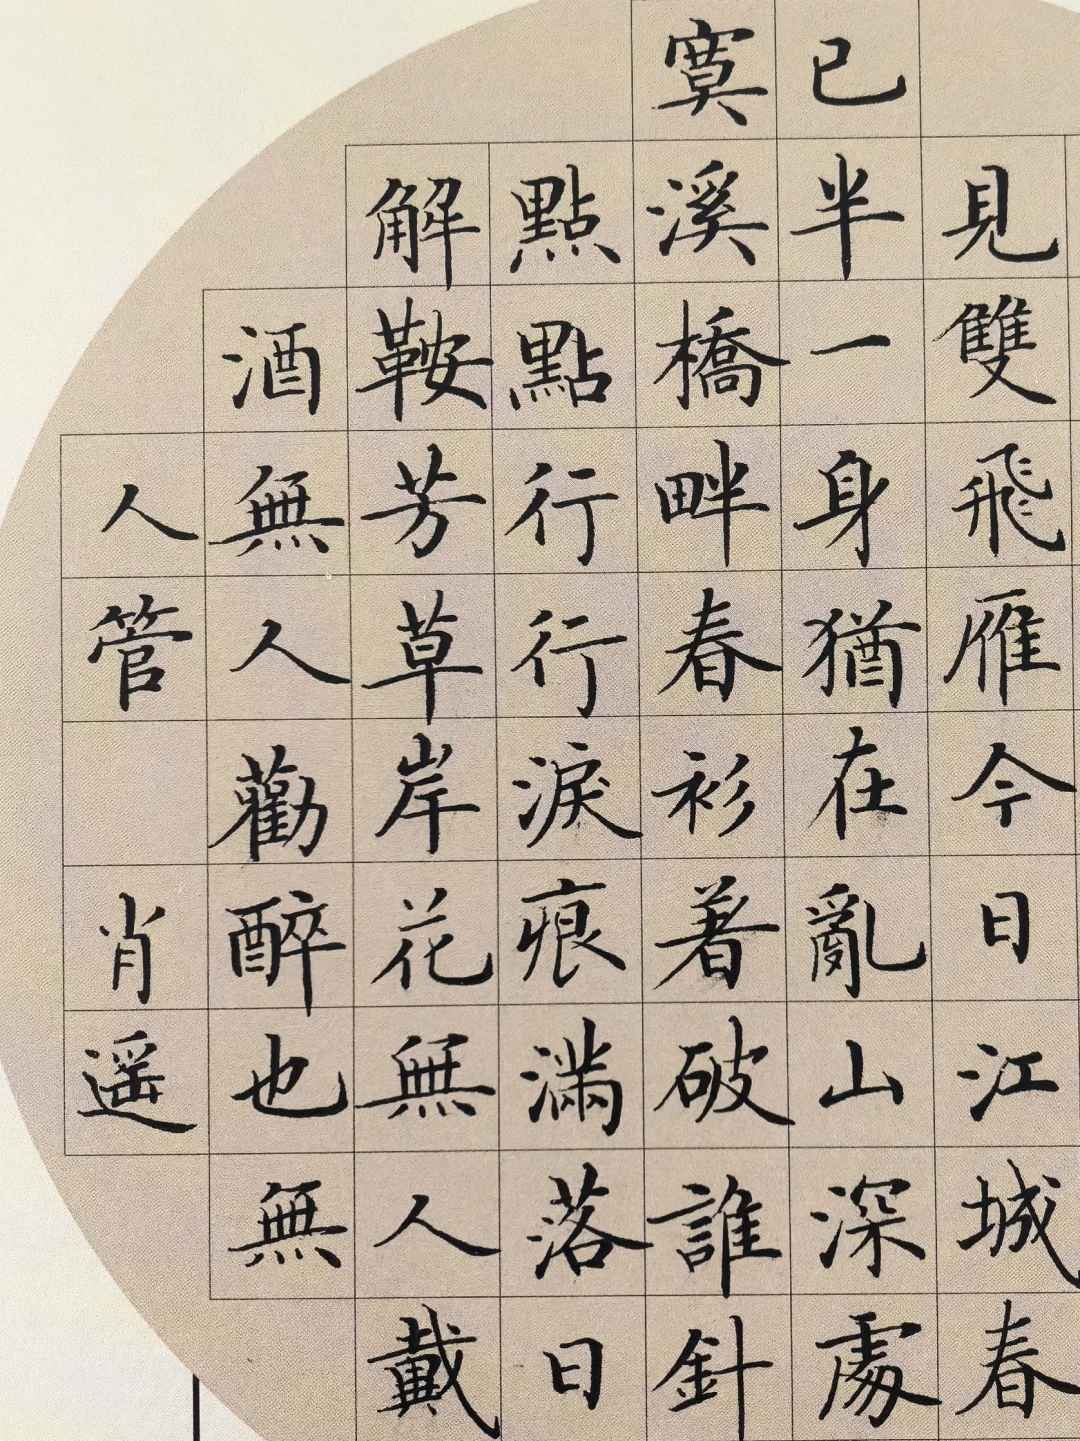 見雙飛雁今日江城春
已半一身猶在亂山深處
寞溪橋畔春衫著破誰針
點點行行淚痕滿落日
解鞍芳草岸花無人戴
酒無人勸醉也無
人管 肖遥